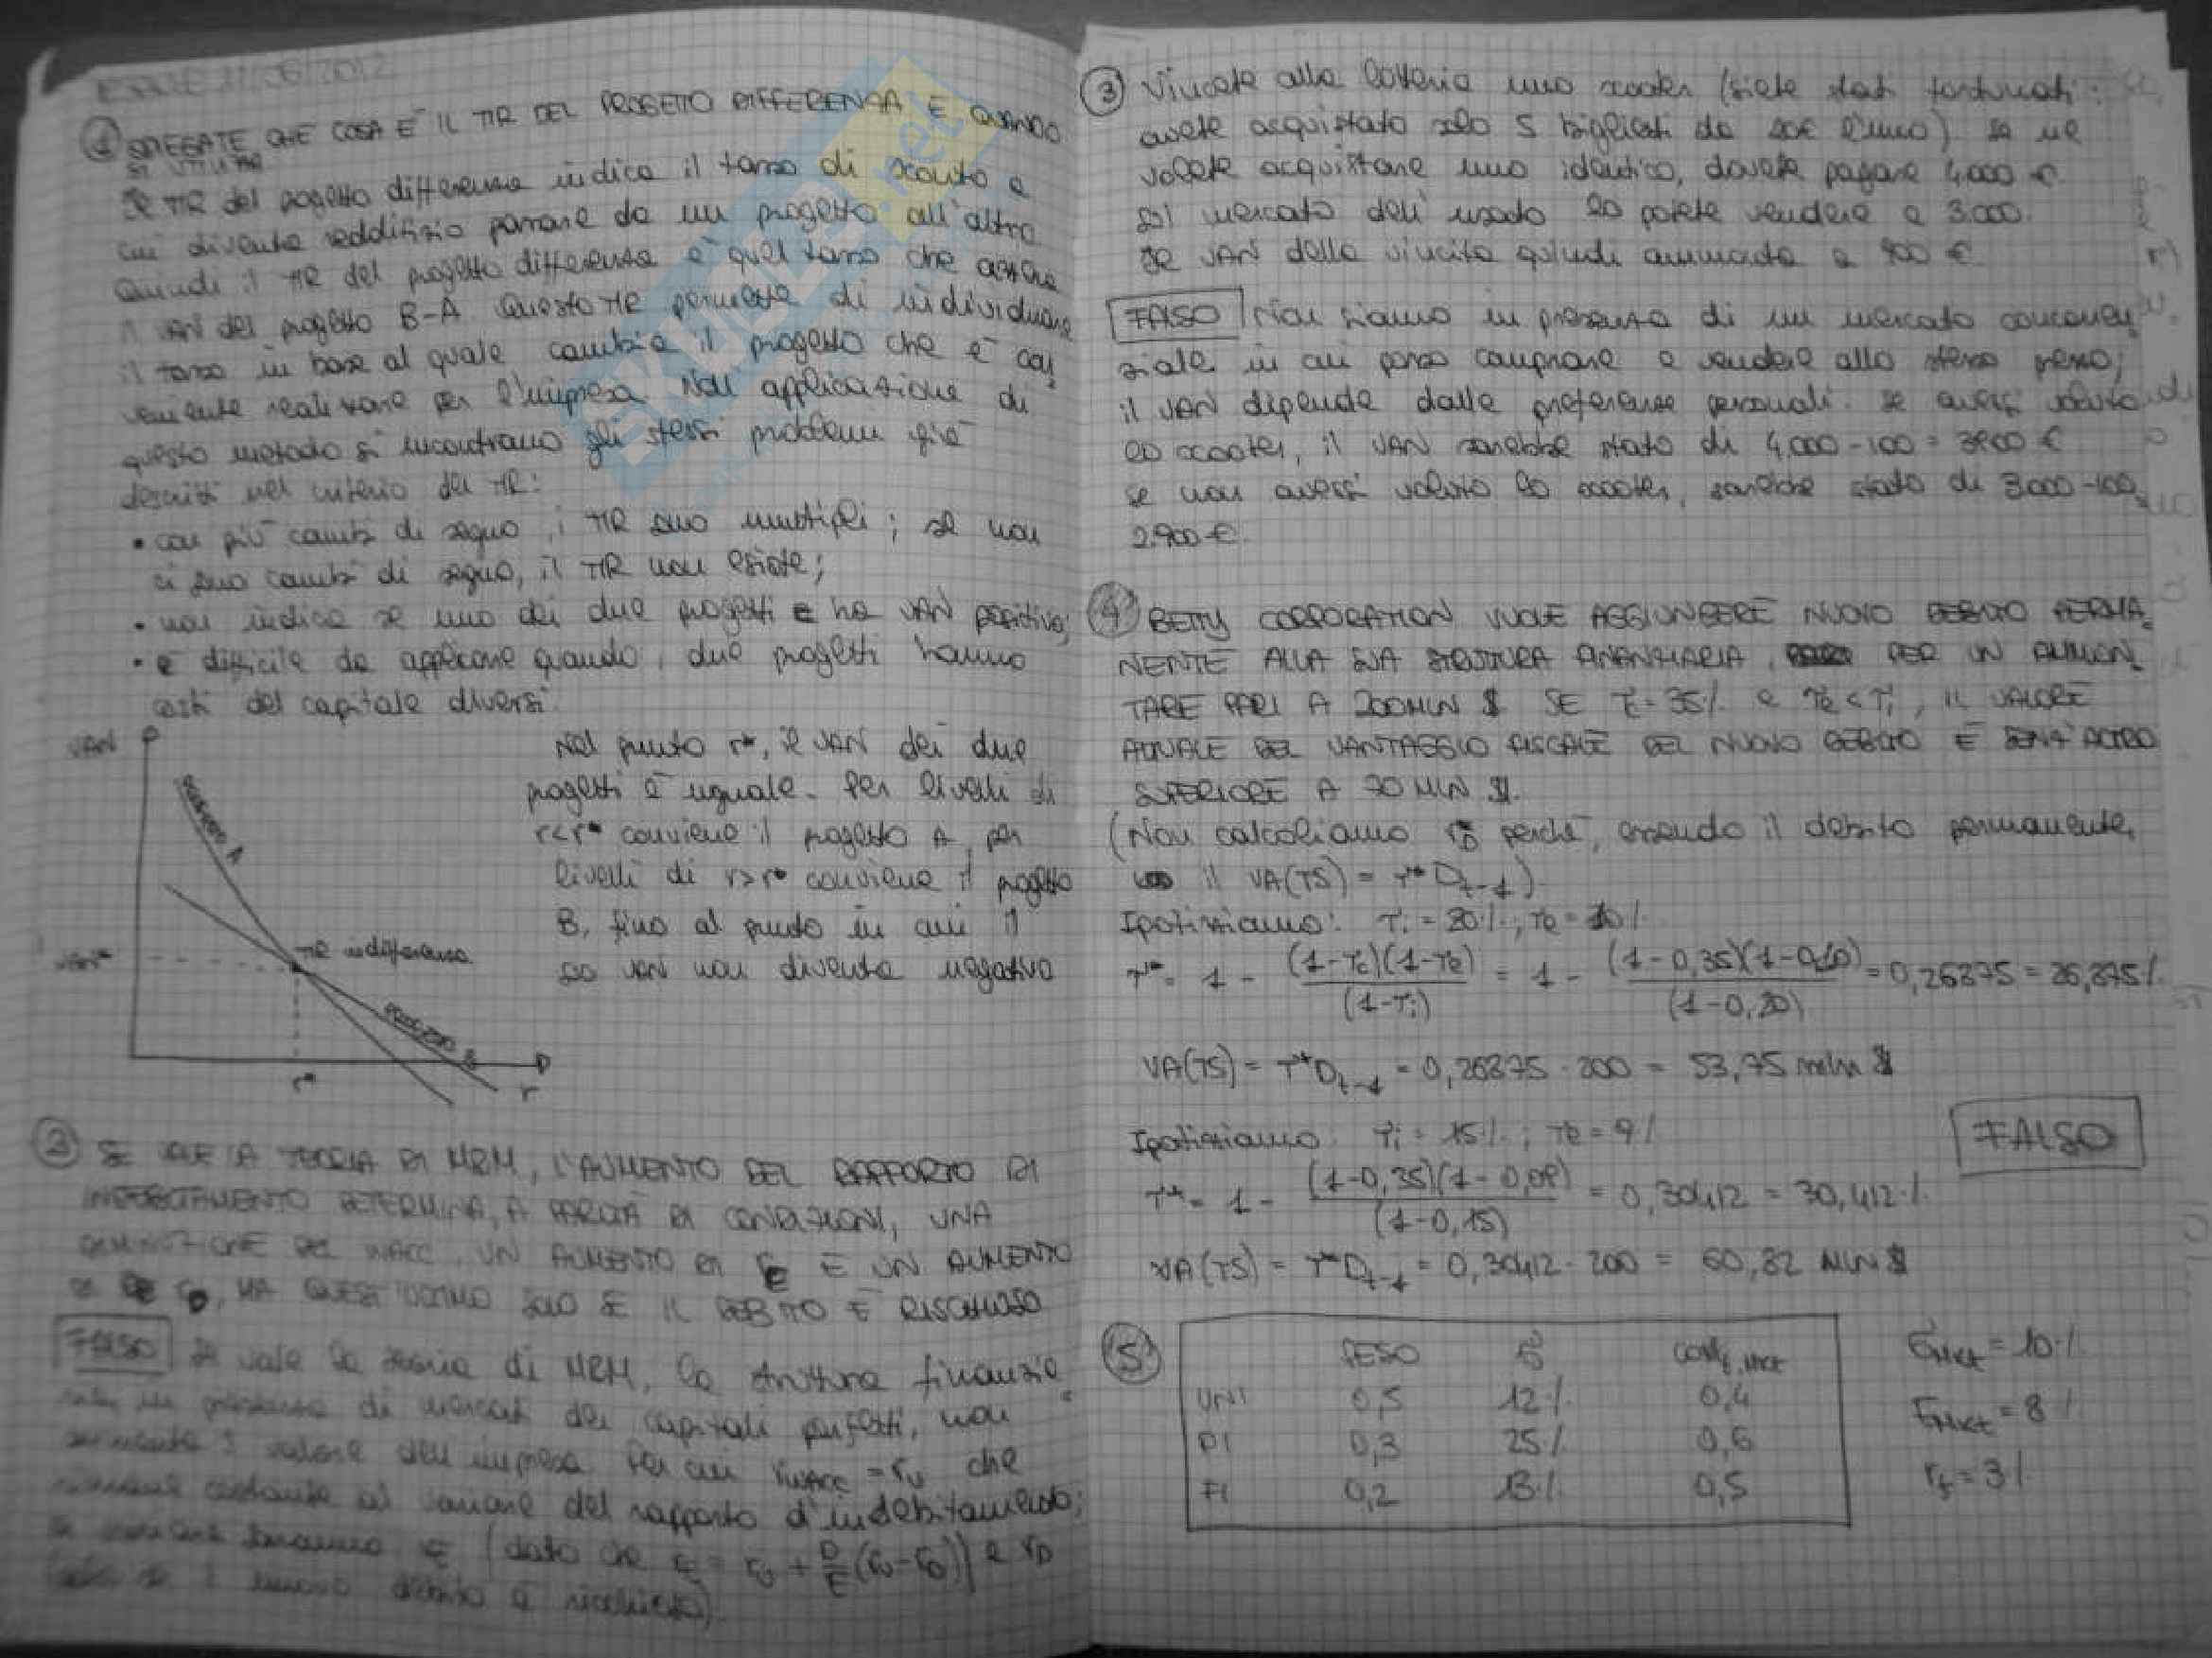 ESAME 11/06/2012
① SPIEGATE CHE COSA È IL TIR DEL PROGETTO DIFFERENZA E QUANDO
SI UTILIZZA
Il TIR del progetto differenza indica il tasso di sconto a
cui diventa redditizio passare da un progetto all'altro.
Quindi il TIR del progetto differenza è quel tasso che azzera
il VAN del progetto B-A. Questo TIR permette di individuare
il tasso in base al quale cambia il progetto che è con
veniente realizzare per l'impresa. Nell'applicazione di
questo metodo si incontrano gli stessi problemi già
descritti nel criterio del TIR:
• con più cambi di segno, i TIR sono multipli; se non
ci sono cambi di segno, il TIR non esiste;
• non indica se uno dei due progetti ha VAN positivo;
• è difficile da applicare quando i due progetti hanno
costi del capitale diversi.
VAN
PROGETTO A
VAN*
TIR indifferenza
PROGETTO B
r*
r
Nel punto r*, il VAN dei due
progetti è uguale. Per livelli di
r<r* conviene il progetto A, per
livelli di r>r* conviene il progetto
B, fino al punto in cui il
suo VAN non diventa negativo
② SE VALE LA TEORIA DI M&M, L'AUMENTO DEL RAPPORTO DI
INDEBITAMENTO DETERMINA, A PARITÀ DI CONDIZIONI, UNA
DIMINUZIONE DEL WACC, UN AUMENTO DI rE E UN AUMENTO
DI rD, MA QUEST'ULTIMO SOLO SE IL DEBITO È RISCHIOSO
FALSO Se vale la teoria di M&M, la struttura finanzia
in presenza di mercati dei capitali perfetti, non
aumenta il valore dell'impresa. Per cui rWACC = rU che
rimane costante al variare del rapporto d'indebitamento;
aumenteranno rE (dato che rE = rU + D/E (rU - rD)) e rD
(solo se il nuovo debito è rischioso).
③ Vincete alla lotteria uno scooter (siete stati fortunati:
avete acquistato solo 5 biglietti da 20€ l'uno) se ne
volete acquistare uno identico, dovete pagare 4.000 €.
Sul mercato dell'usato lo potete vendere a 3.000.
Il VAN della vincita quindi ammonta a 900 €
FALSO Non siamo in presenza di un mercato concorren
ziale in cui posso comprare e vendere allo stesso prezzo;
il VAN dipende dalle preferenze personali. Se avessi voluto
lo scooter, il VAN sarebbe stato di 4.000-100 = 3900 €
se non avessi voluto lo scooter, sarebbe stato di 3.000-100=
2.900 €.
④ BETTY CORPORATION VUOLE AGGIUNGERE NUOVO DEBITO PERMA
NENTE ALLA SUA STRUTTURA FINANZIARIA, PER UN AMMON
TARE PARI A 200 MLN $. SE τc=35% e τe<τi, IL VALORE
ATTUALE DEL VANTAGGIO FISCALE DEL NUOVO DEBITO È SENZ'ALTRO
SUPERIORE A 70 MLN $.
(Non calcoliamo rD perché, essendo il debito permanente,
il VA(TS) = τ* Dt-1).
Ipotizziamo: τi = 20%; τe = 10%
τ* = 1 - (1-τc)(1-τe)/(1-τi) = 1 - (1-0,35)(1-0,10)/(1-0,20) = 0,26875 = 26,875%
VA(TS) = τ* Dt-1 = 0,26875 · 200 = 53,75 mln $
Ipotizziamo: τi = 15%; τe = 9%
FALSO
τ* = 1 - (1-0,35)(1-0,09)/(1-0,15) = 0,30412 = 30,412%
VA(TS) = τ* Dt-1 = 0,30412 · 200 = 60,82 MLN $
⑤ PESO CORRi,MKT
UNI 0,5 12% 0,4
PI 0,3 25% 0,6
FI 0,2 13% 0,5
= 10%
= 8%
rf = 3%